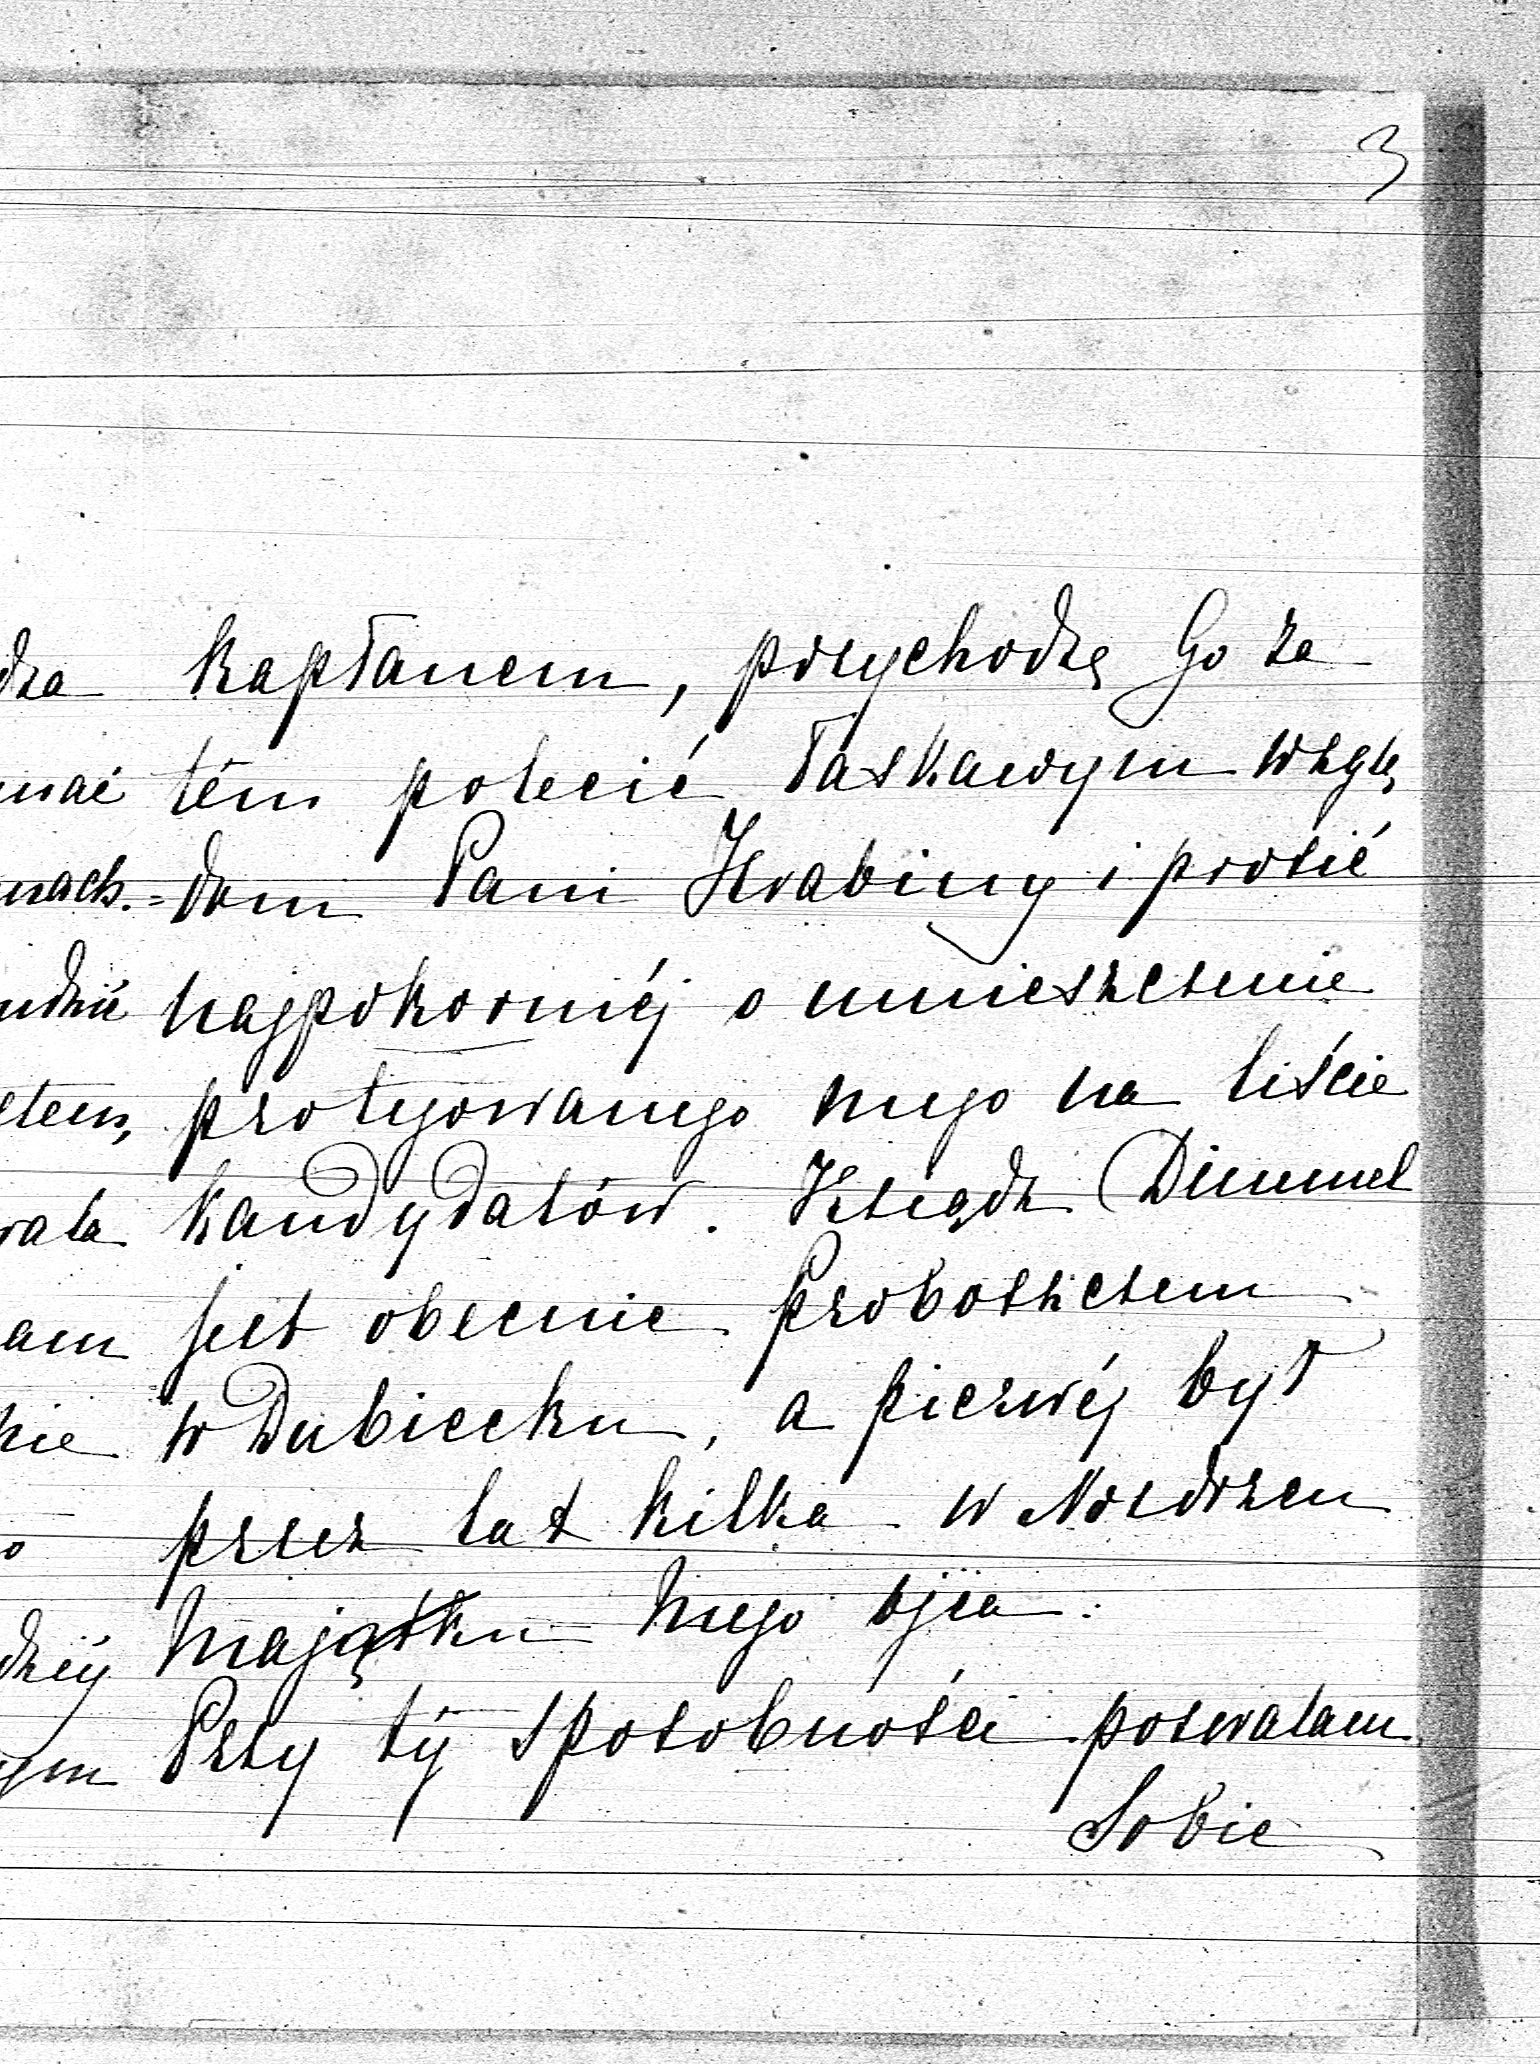 3
kapłanem, przychodzę Go za
tém polecić łaskawym wzglę
dom Pani Hrabiny i prosić
najpokorniéj o umieszczenie
protegowanego mego na liście
kandydatów. Ksiądz Dimmel
jest obecnie Proboszczem
w Dubiecku, a pierwéj był
przez lat kilka w Nozdrzcu
majątku mego ojca.
Przy téj sposobności pozwalam
Sobie